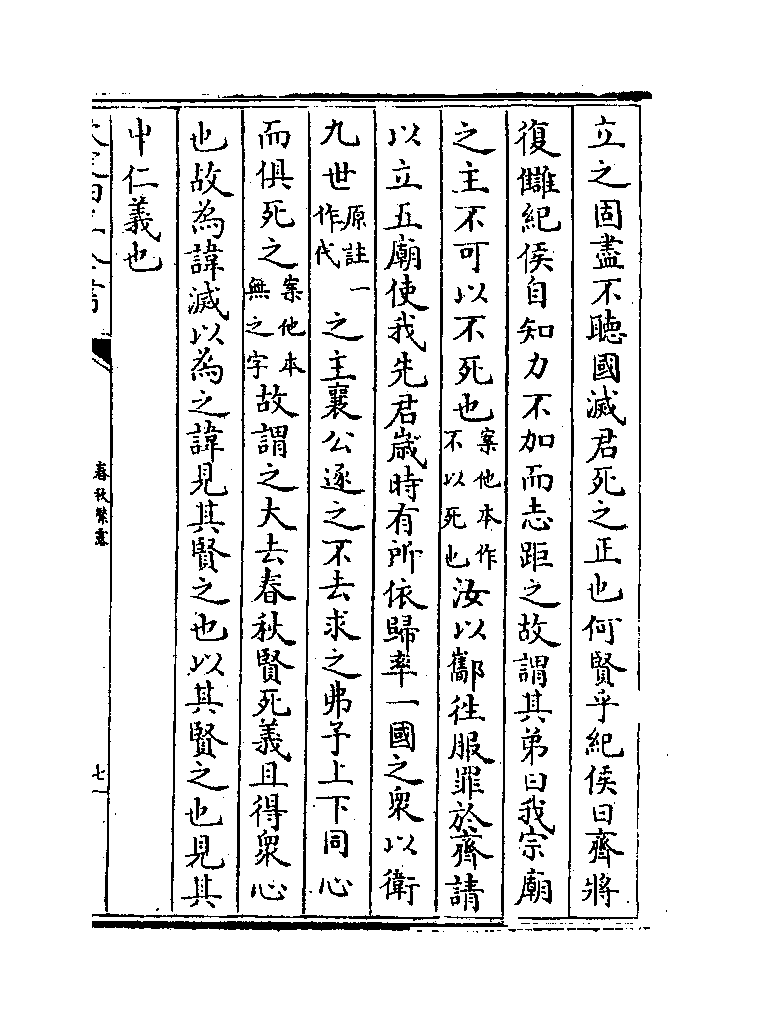 立之固盡不聽國滅君死之正也何賢乎紀侯曰齊將
復讎紀侯自知力不加而志距之故謂其弟曰我宗廟
之主不可以不死也案他本作不以死也汝以酅徃服罪於齊請
以立五廟使我先君歲時有所依歸率一國之衆以衛
九世原註一作代之主襄公逐之不去求之弗予上下同心
而俱死之案他本無之字故謂之大去春秋賢死義且得衆心
也故為諱滅以為之諱見其賢之也以其賢之也見其
中仁義也
春秋繁露
七